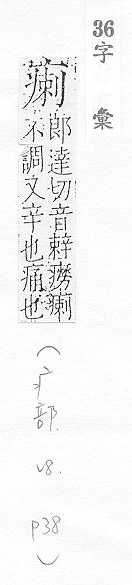 36字彙
瘌
郎達切音辢癆瘌
不調又辛也痛也
(疒部. v8. p38)